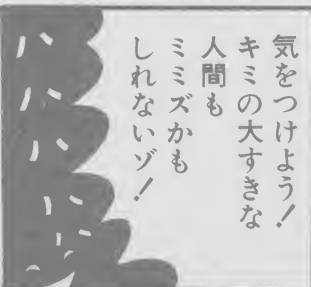 気をつけよう！
キミの大すきな
人間も
ミミズかも
しれないゾ！
ハハハハ